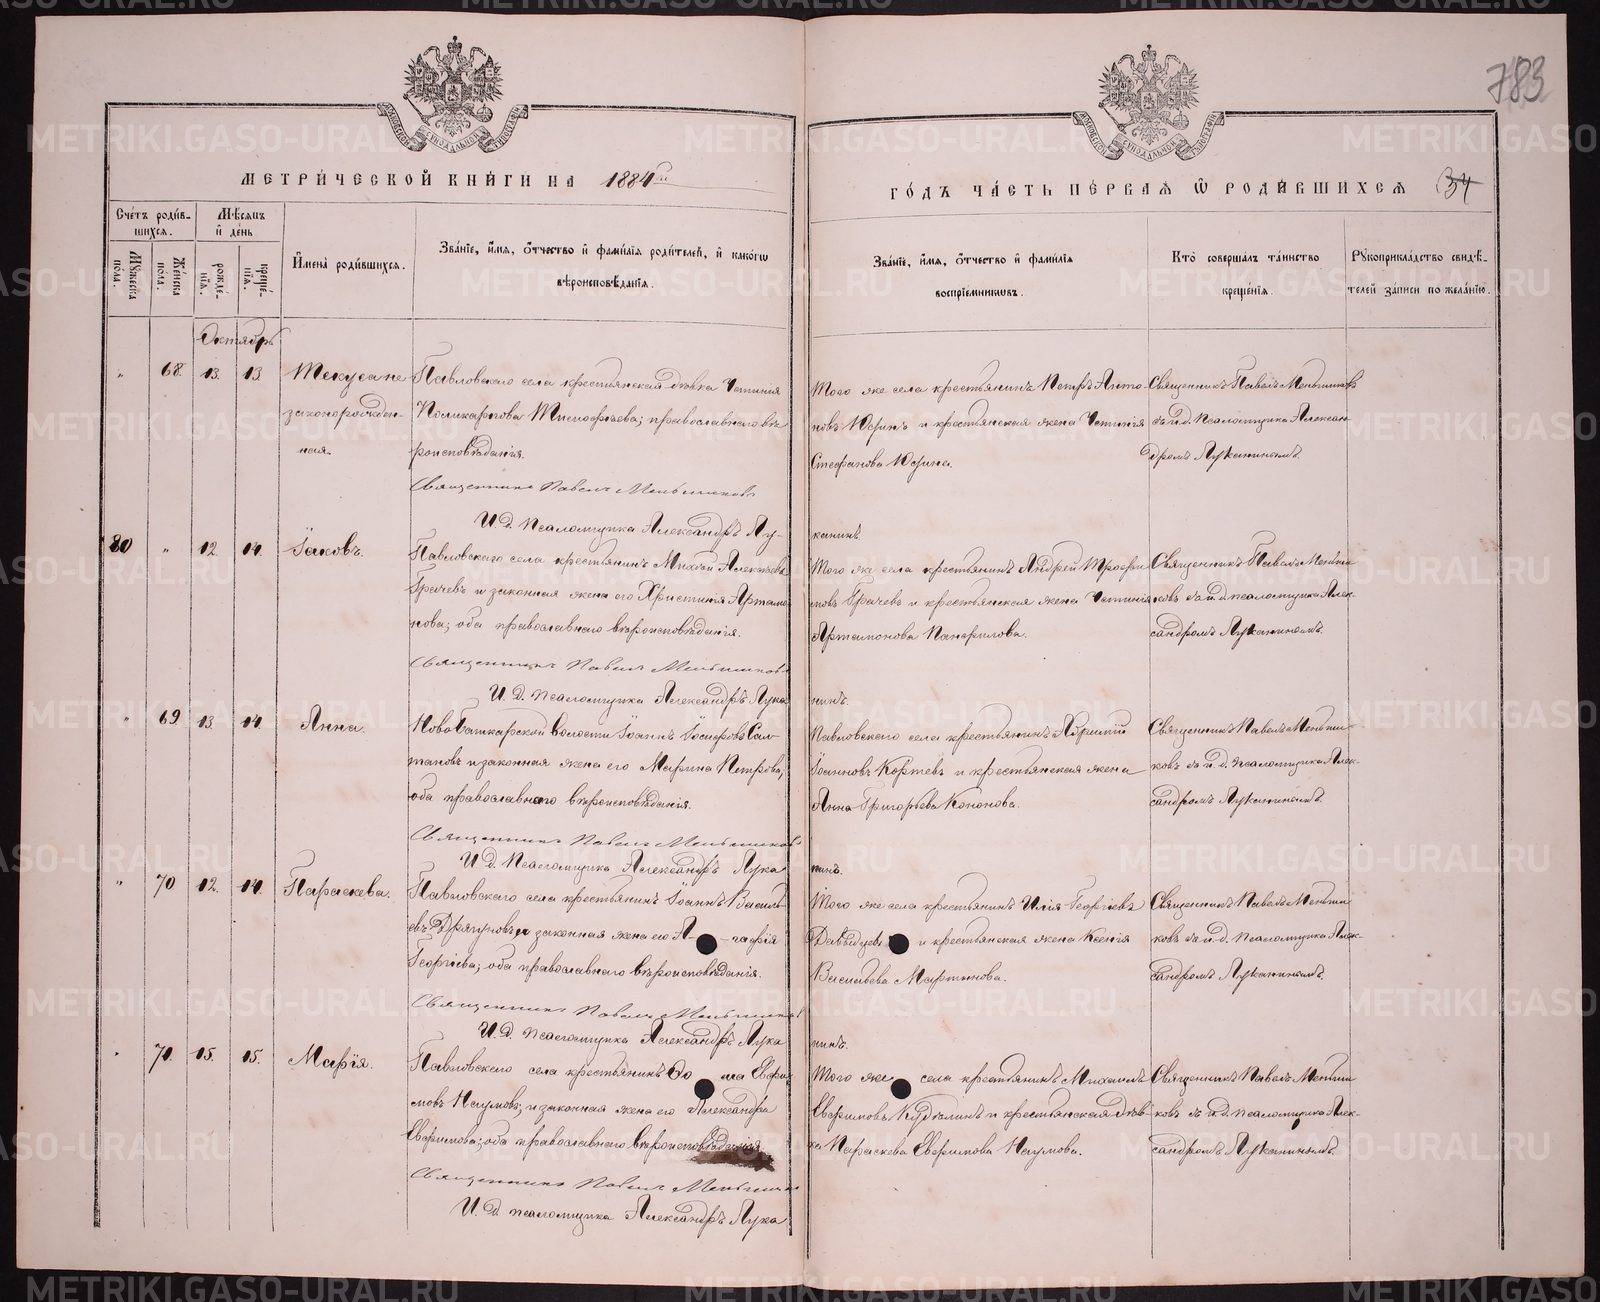 783
МЕТРИ́ЧЕСКОЙ КНИ́ГИ НА 1884й
ГО́ДЪ ЧА́СТЬ ПЕ́РВАЯ Ѿ РОДИ́ВШИХСЯ 34
Сче́тъ роди́в-
шихся.
Мѣ́сяцъ
и҆ де́нь
Му́жеска
по́ла.
Же́нска
по́ла.
рожде́-
нїя.
креще́-
нїя.
И҆мена̀ роди́вшихся.
Зва́нїе, и҆́мя, ѻ҆́тчество и҆ фами́лїя роди́телей, и҆ како́гѡ
вѣроисповѣ́данїя.
Зва́нїе, и҆́мя, ѻ҆́тчество и҆ фами́лїя
воспрїе́мникѡвъ.
Кто̀ соверша́лъ та́инство
креще́нїя.
Рꙋкоприкла́дство свидѣ́-
телей за́писи по жела́нїю.
Октябрь
„ 68. 13. 13. Текуса не
законорожден-
ная.
Павловскаго села крестьянская дѣвка Устинія
Поликарпова Тимофѣева; православнаго вѣ-
роисповѣданія.
Священникъ Павелъ Меньшиковъ
И. д. Псаломщика Александръ Лу-
канинъ
Того же села крестьянинъ Петръ Анто-
новъ Юринъ и крестьянская жена Устинія
Стефанова Юрина.
Священникъ Павелъ Меньшиковъ
съ и. д. Псаломщика Алексан-
дромъ Луканинымъ.
80 „ 12. 14. Іаковъ.
Павловскаго села крестьянинъ Михей Алексѣевъ
Грачевъ и законная жена его Христинія Артамо-
нова; оба православнаго вѣроисповѣданія.
Священникъ Павелъ Меньшиковъ
И. д. Псаломщика Александръ Лука-
нинъ.
Того же села крестьянинъ Андрей Трофи-
мовъ Грачевъ и крестьянская жена Устинія
Артамонова Панфилова.
Священникъ Павелъ Меньши-
ковъ съ и. д. псаломщика Алек-
сандромъ Луканинымъ.
„ 69. 13. 14. Анна.
Новобашкарской волости Іоаннъ Іосифовъ Сал-
тановъ и законная жена его Марина Петрова;
оба православнаго вѣроисповѣданія.
Священникъ Павелъ Меньшиковъ
И. д. Псаломщика Александръ Лука
нинъ.
Павловскаго села крестьянинъ
Іоанновъ Коржевъ и крестьянская жена
Анна Григорьева Кононова.
Священникъ Павелъ Меньши-
ковъ съ и. д. псаломщика Алек-
сандромъ Луканинымъ.
„ 70 12. 14. Параскева.
Павловскаго села крестьянинъ Іоаннъ Василь-
евъ Дрягуновъ и законная жена его А гафія
Георгіева; оба православнаго вѣроисповѣданія.
Священникъ Павелъ Меньшиковъ
И. д. Псаломщика Александръ Лука
нинъ.
Того же села крестьянинъ Илія Георгіевъ
Давыдцевъ и крестьянская жена Ксенія
Васильева Мартынова.
Священникъ Павелъ Меньши-
ковъ съ и. д. псаломщика Алек-
сандромъ Луканинымъ.
„ 71. 15. 15. Марія.
Павловскаго села крестьянинъ Ѳо ма Евфи-
мовъ Наумовъ; и законная жена его Александра
Евфимова; оба православнаго вѣроисповѣданія.
Священникъ Павелъ Меньшиковъ
И. д. псаломщика Александръ Лука
Того же села крестьянинъ Михаилъ
Евфимовъ Кудѣлинъ и крестьянская дѣв-
ка Параскева Евфимова Наумова.
Священникъ Павелъ Меньши-
ковъ съ и. д. псаломщика Алек-
сандромъ Луканинымъ.
METRIKI.GASO-URAL.RU